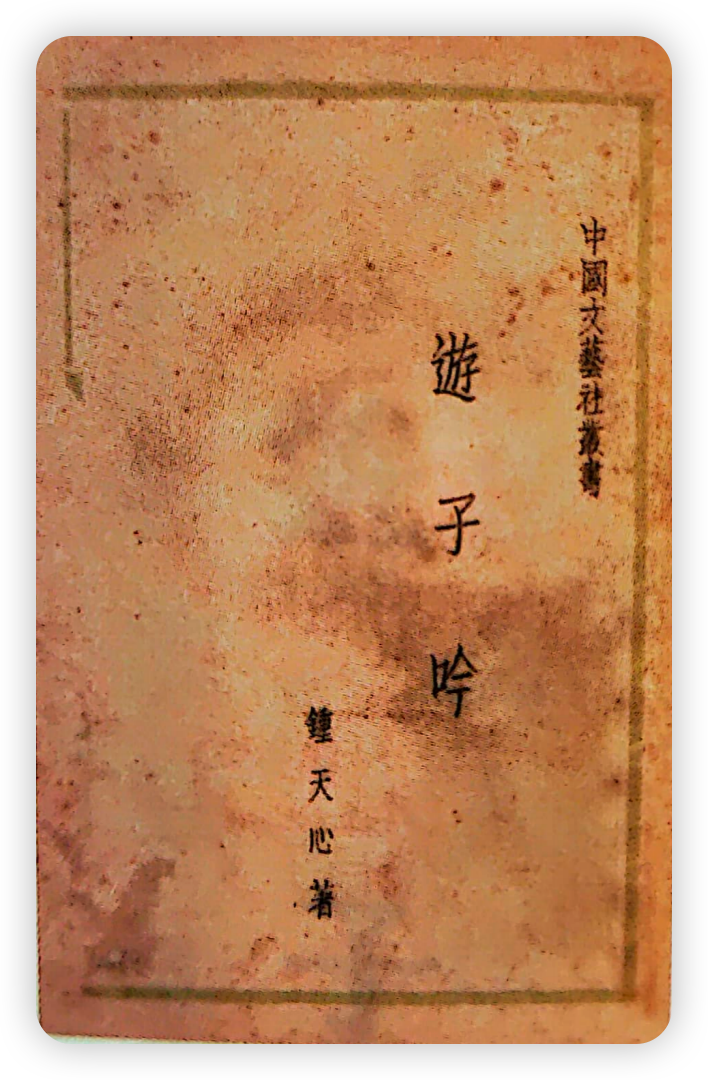 中國文藝社叢書
遊子吟
鍾天心著